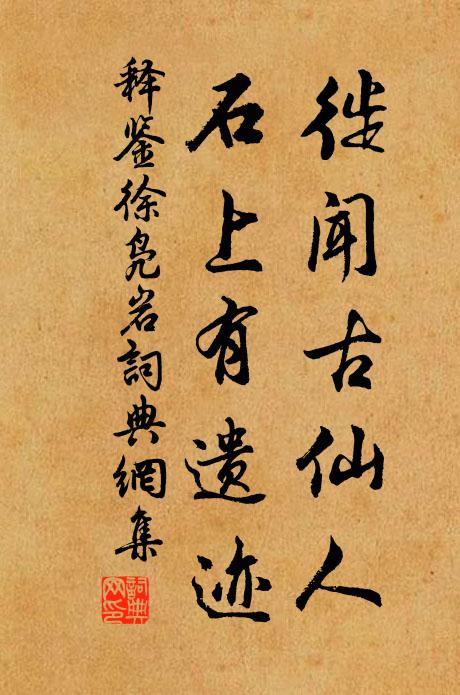 徒闻古仙人
石上有遗迹
释鉴徐凫岩詞典網集
詞典
网印